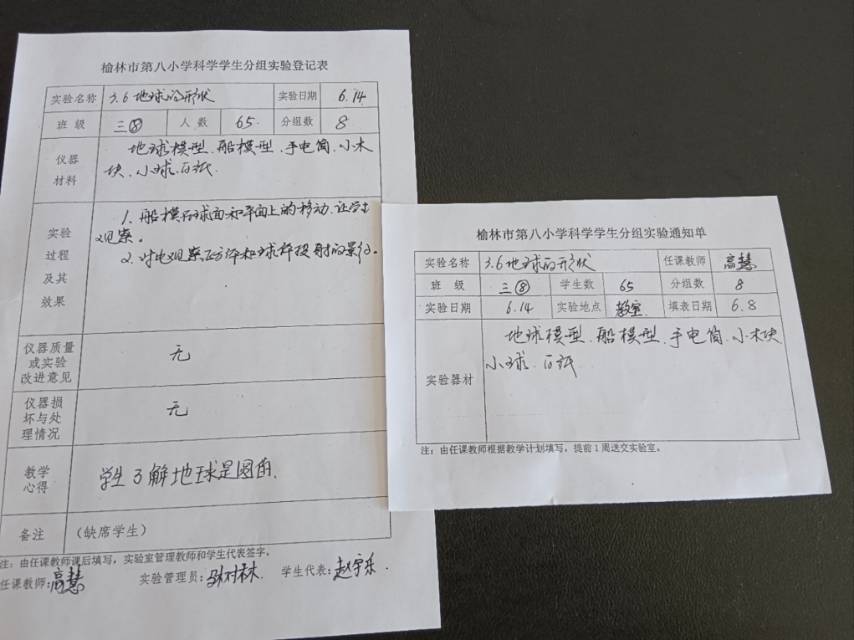 榆林市第八小学科学学生分组实验登记表
实验名称 3.6地球的形状 实验日期 6.14
班 级 三⑧ 人 数 65. 分组数 8
仪器
材料
地球模型、船模型、手电筒、小木
块、小球、白纸
实验
过程
及其
效果
1. 船模在球面和平面上的移动,让学生
观察。
2. 对比观察正方体和球体投射的影子。
仪器质量
或实验
改进意见
无
仪器损
坏与处
理情况
无
教学
心得
学生了解地球是圆的.
备注 (缺席学生)
注:由任课教师课后填写,实验室管理教师和学生代表签字。
任课教师:高慧 实验管理员: 学生代表:赵宇乐.
榆林市第八小学科学学生分组实验通知单
实验名称 3.6地球的形状 任课教师 高慧
班 级 三⑧ 学生数 65 分组数 8
实验日期 6.14 实验地点 教室 填表日期 6.8
实验器材
地球模型、船模型、手电筒、小木块
小球、白纸
注:由任课教师根据教学计划填写,提前1周送交实验室。